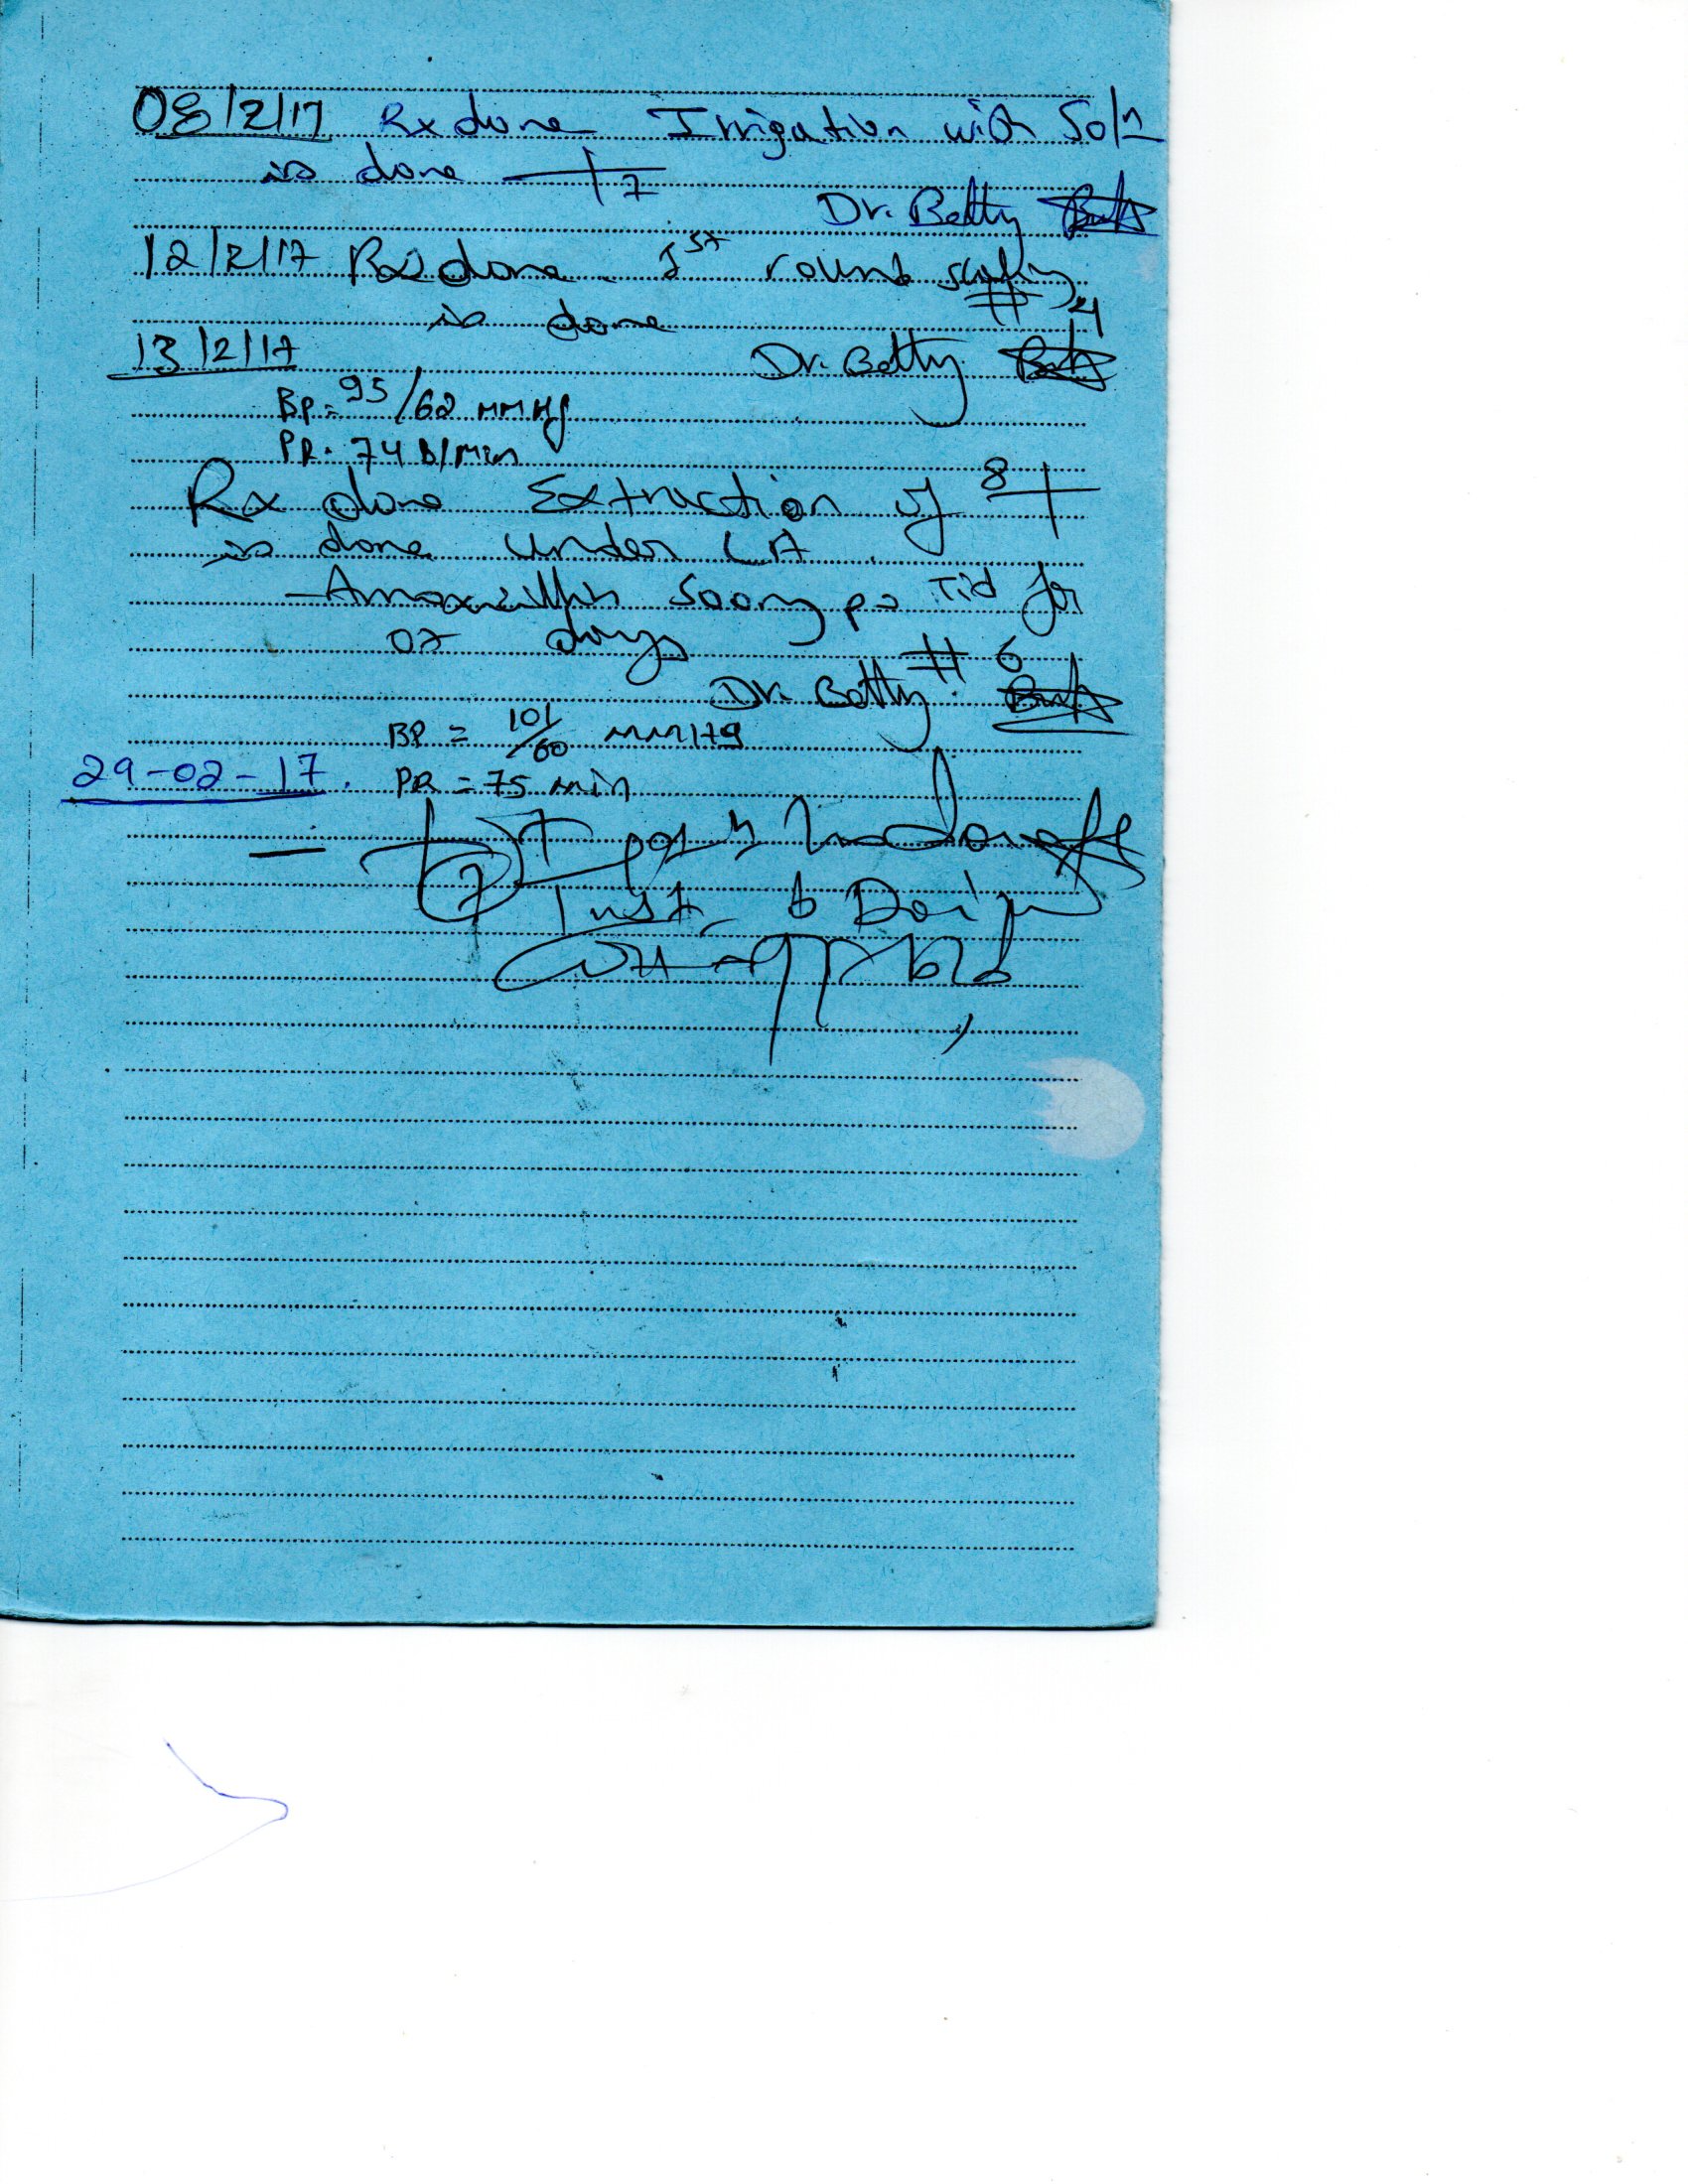 08/2/17 Rx done Irrigation with Soln
is done 7
Dr. Betty
12/2/17 Rx done 1st round scaling
is done # 4
13/2/17 Dr. Betty
BP= 95/62 MMHg
PR= 74 B/Min
Rx done Extraction of 8
is done under LA.
-Amoxicillin 500mg po TID for
07 days
# 6
Dr. Betty
BP = 101/60 mmHg
29-02-17. PR = 75 min